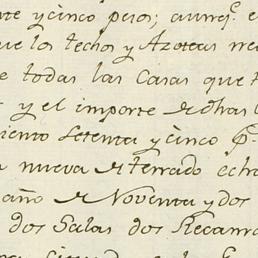 te y cinco pesos; aunq.e e
ue los techos y Azoteas ne
e todas las Casas que t
y el importe de dhas
iento Setenta y cinco p.s
a nueva de terrado echa
año de Noventa y dos
dos Salas dos Recama